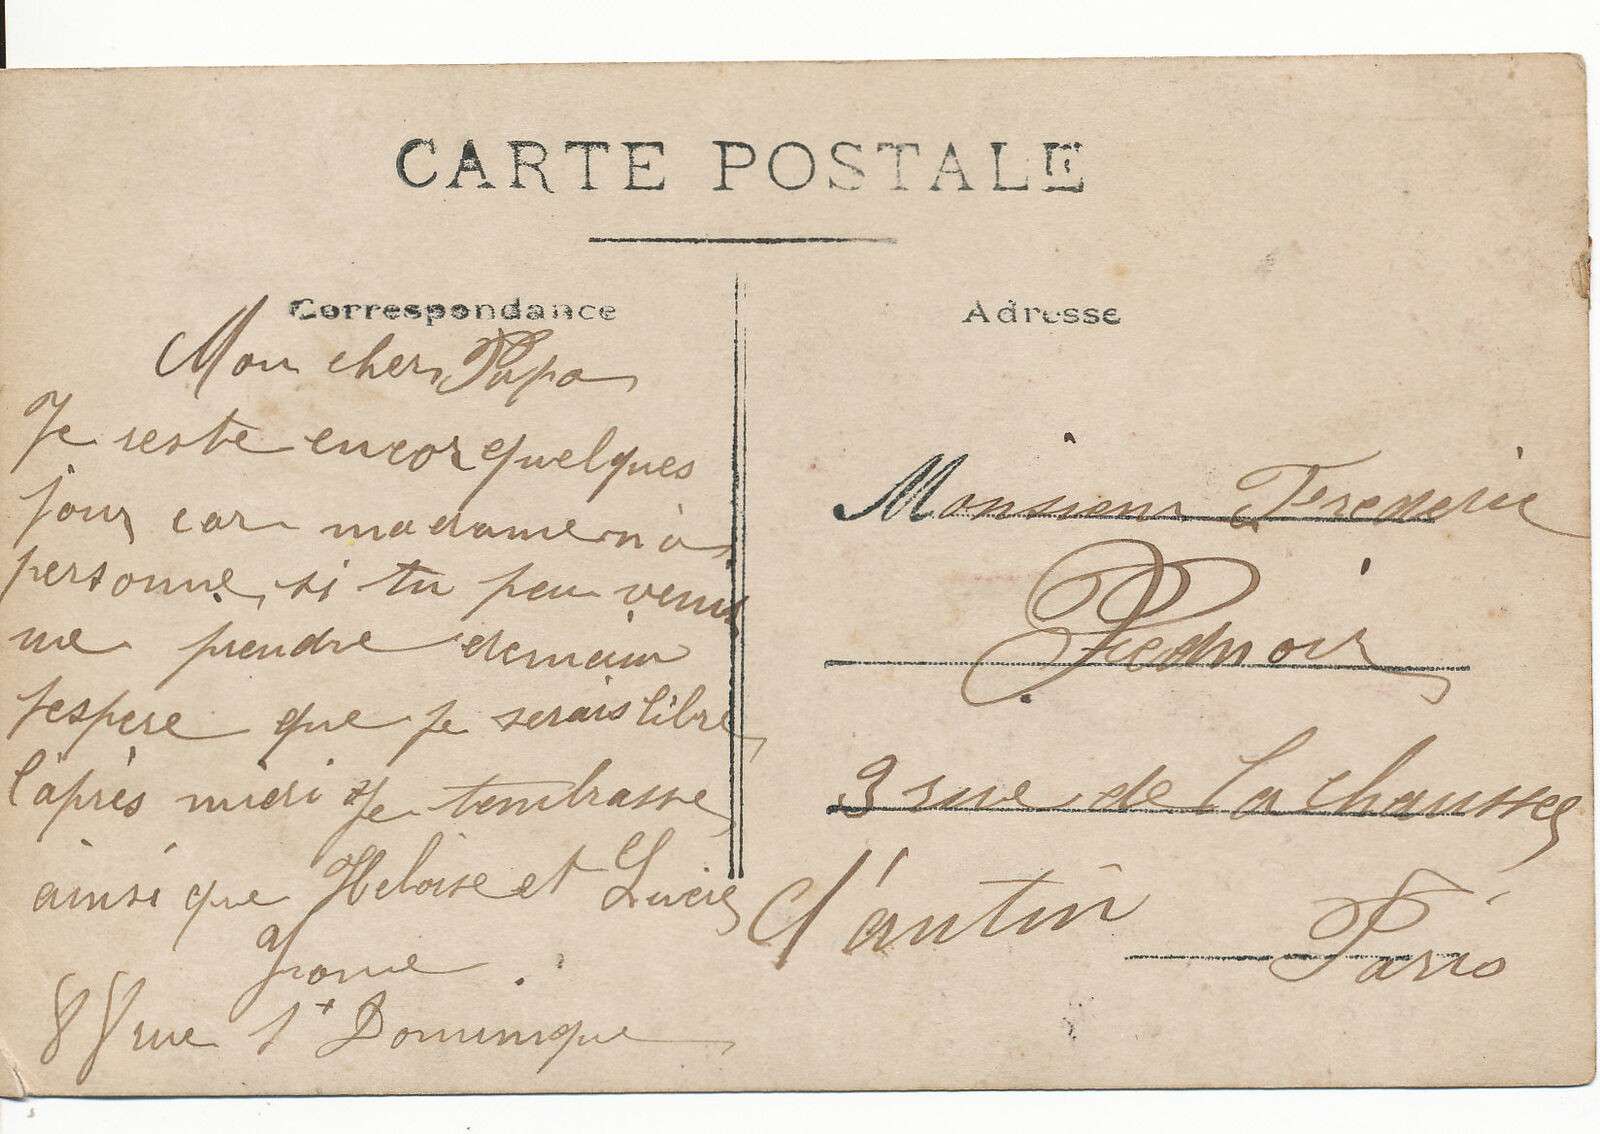 CARTE POSTALE
Correspondance
Mon cher Papa
Je reste encor quelques
jours car madame n'a
personne, si tu peu venir
me prendre demain
jespere que je serais libre
l'après midi Je tembrasse
ainsi que Heloise et Lucie
88 rue St Dominique
Adresse
Monsieur Frederic
Piednoir
3 rue de la chaussee
d'antin Paris